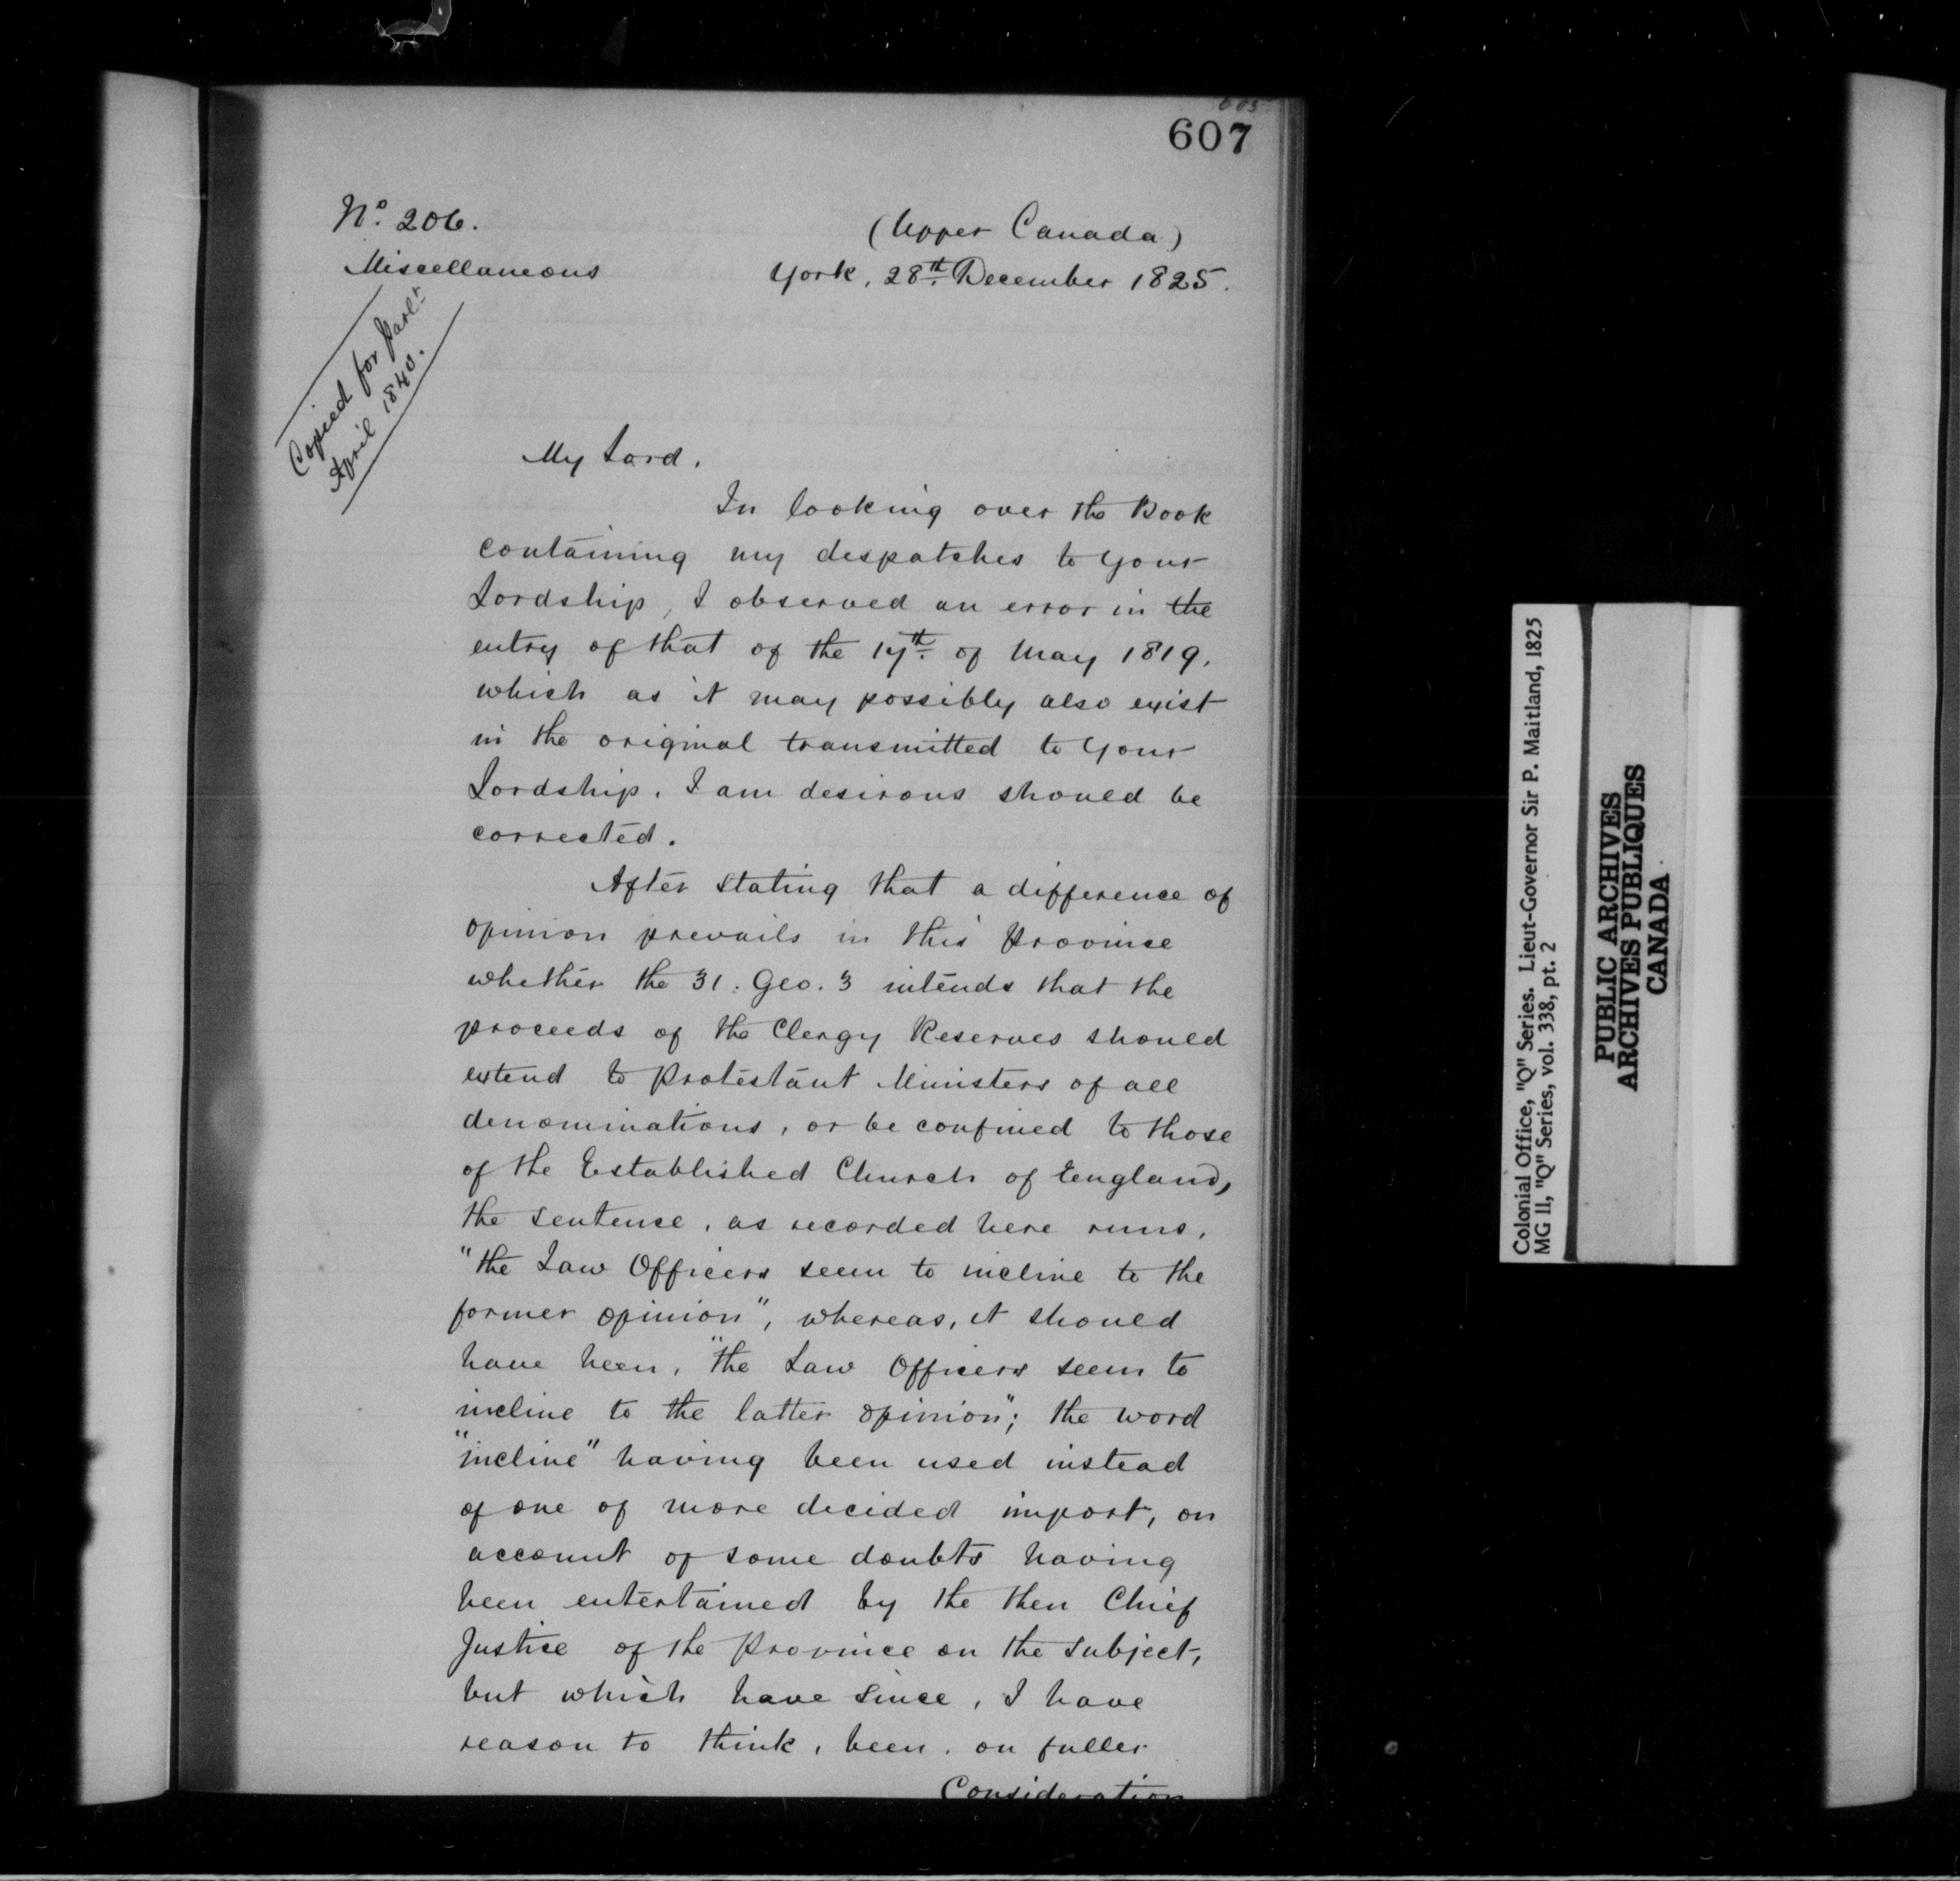 607
No. 206.
(Upper Canada)
Miscellaneous
York, 28th. December 1825.
Copied for Parlt.
April 1840.
My Lord,
In looking over the Book
containing my despatches to Your
Lordship, I observed an error in the
entry of that of the 17th. of May 1819,
which as it may possibly also exist
in the original transmitted to Your
Lordship, I am desirous should be
corrected.
After stating that a difference of
opinion prevails in this Province
whether the 31. Geo. 3 intends that the
proceeds of the Clergy Reserves should
extend to Protestant Ministers of all
denominations, or be confined to those
of the Established Church of England,
the sentence, as recorded here runs,
"the Law Officers seem to incline to the
former opinion", whereas, it should
have been, "the Law Officers seem to
incline to the latter opinion"; the word
"incline" having been used instead
of one of more decided import, on
account of some doubts having
been entertained by the then Chief
Justice of the Province on the subject,
but which have since, I have
reason to think, been, on fuller
Consideration
Colonial Office, "Q" Series. Lieut-Governor Sir P. Maitland, 1825
MG 11, "Q" Series, vol. 338, pt. 2
PUBLIC ARCHIVES
ARCHIVES PUBLIQUES
CANADA